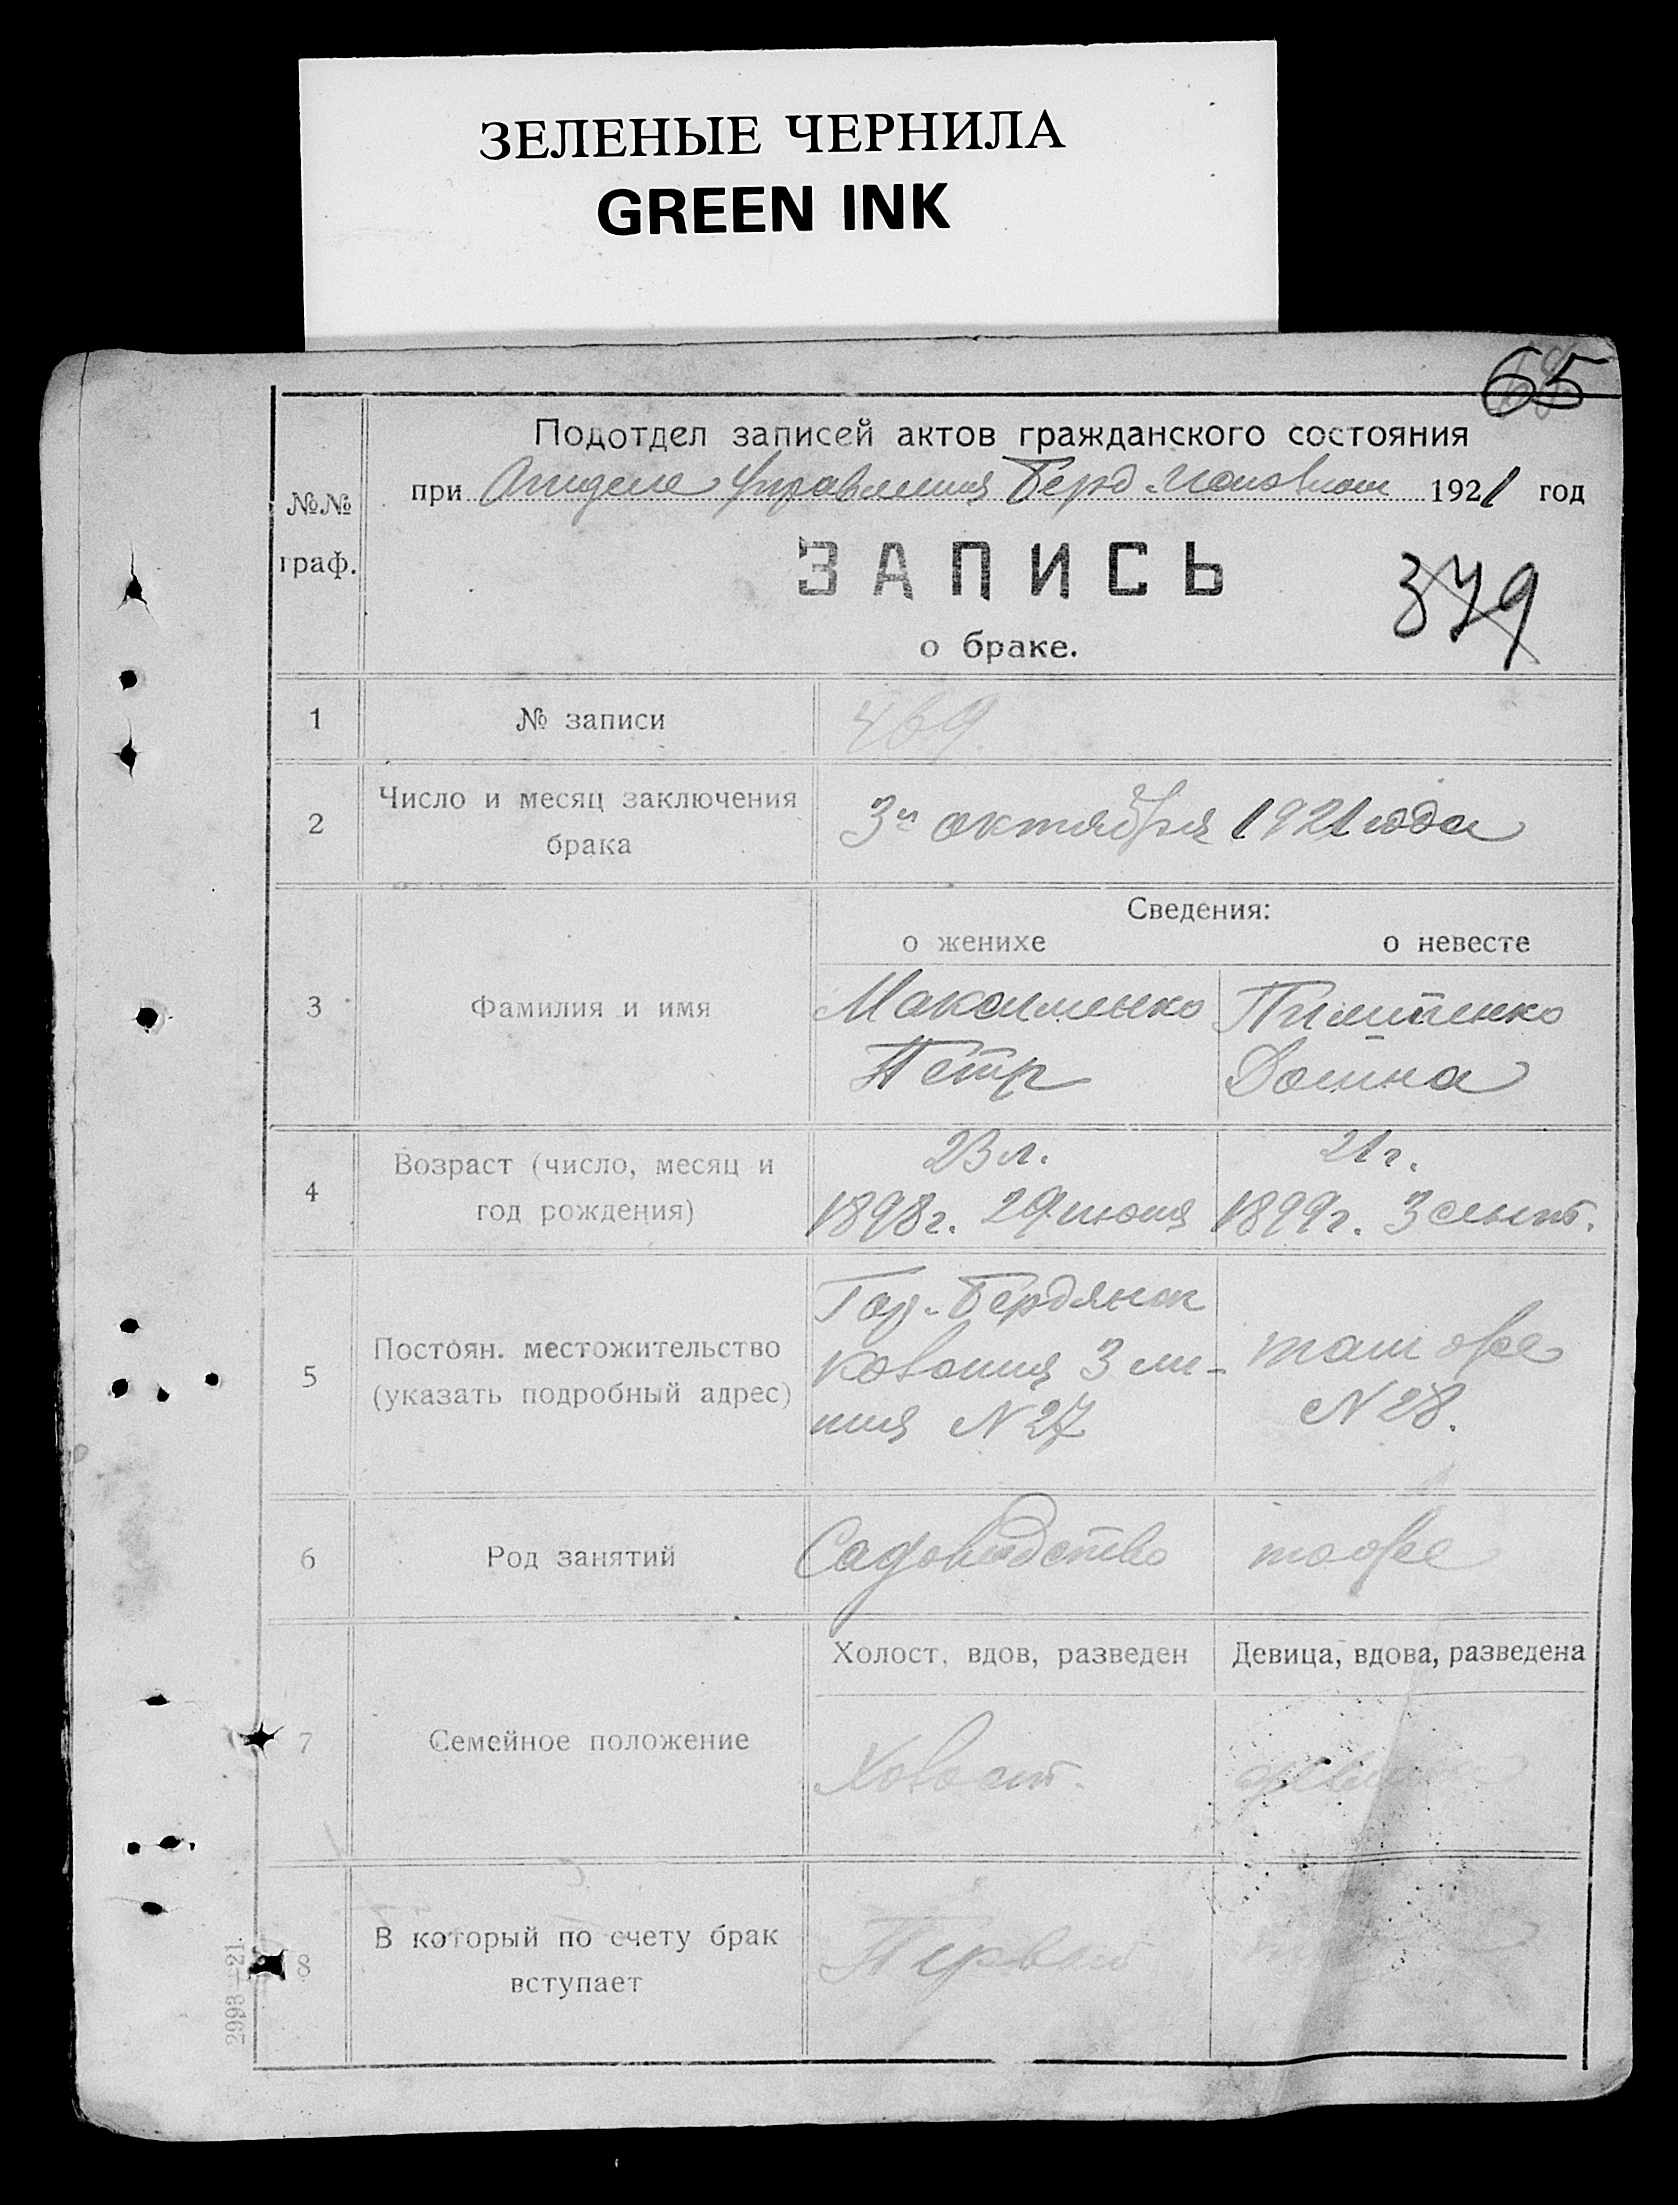 ЗЕЛЕНЫЕ ЧЕРНИЛА
GREEN INK
65
Подотдел записей актов гражданского состояния
при Отделе Управления Берд. Исполком 1921 год
№№
граф.
ЗАПИСЬ
379
о браке.
1 № записи 469
2 Число и месяц заключения
брака
3го октября 1921 года
Сведения:
о женихе о невесте
3 Фамилия и имя
Максименко Пилипенко
Петр Домна
4 Возраст (число, месяц и
год рождения)
23 л. 21 г.
1898 г. 29 июня 1899 г. 3 сент.
5 Постоян. местожительство
(указать подробный адрес)
Гор. Бердянск
3 ли- там же
ния N 27 N 28.
6 Род занятий
Садоводство тоже
Холост, вдов, разведен Девица, вдова, разведена
7 Семейное положение
Холост. девица
8 В который по счету брак
вступает
Первый
2993—21.